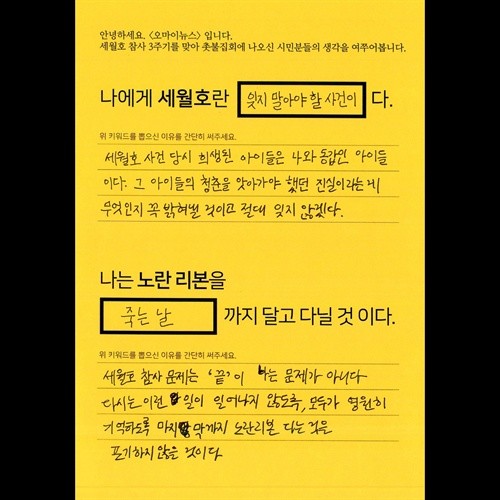 안녕하세요. <오마이뉴스> 입니다.
세월호 참사 3주기를 맞아 촛불집회에 나오신 시민분들의 생각을 여쭈어봅니다.
나에게 세월호란 잊지 말아야 할 사건이 다.
위 키워드를 뽑으신 이유를 간단히 써주세요.
세월호 사건 당시 희생된 아이들은 나와 동갑인 아이들
이다. 그 아이들의 청춘을 앗아가야 했던 진실이라는 게
무엇인지 꼭 밝혀낼 것이고 절대 잊지 않겠다.
나는 노란 리본을
죽는 날 까지 달고 다닐 것 이다.
위 키워드를 뽑으신 이유를 간단히 써주세요.
세월호 참사 문제는 '끝'이 나는 문제가 아니다
다시는 이런 일이 일어나지 않도록, 모두가 영원히
기억하도록 마지막까지 노란리본 다는 것을
포기하지 않을 것이다.